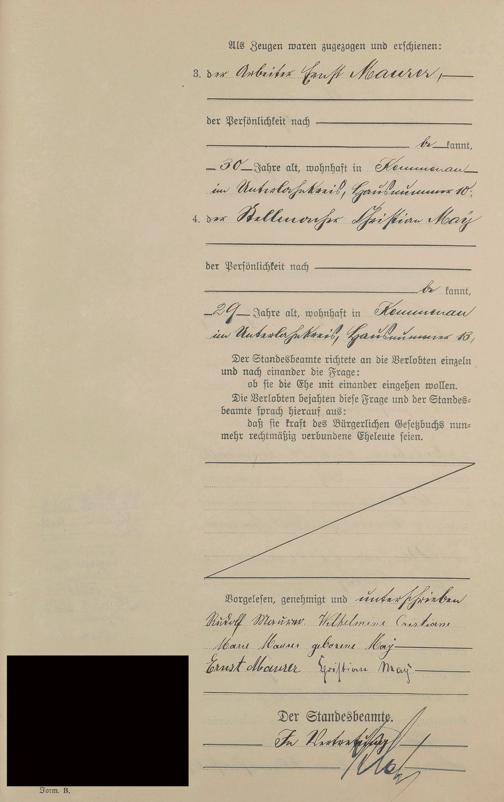 Als Zeugen waren zugezogen und erschienen:
3. der Arbeiter Ernst Maurer,
der Persönlichkeit nach
be kannt,
30 Jahre alt, wohnhaft in Kemmenau
im Unterlahnkreis, Hausnummer 10.
4. der Stellmacher Christian May
der Persönlichkeit nach
be kannt,
29 Jahre alt, wohnhaft in Kemmenau
im Unterlahnkreis, Hausnummer 13,
Der Standesbeamte richtete an die Verlobten einzeln
und nach einander die Frage:
ob sie die Ehe mit einander eingehen wollen.
Die Verlobten bejahten diese Frage und der Standes-
beamte sprach hierauf aus:
daß sie kraft des Bürgerlichen Gesetzbuchs nun-
mehr rechtmäßig verbundene Eheleute seien.
Vorgelesen, genehmigt und unterschrieben
Rudolf Maurer. Wilhelmine
Maurer geborene May
Ernst Maurer Christian May
Der Standesbeamte.
In Vertretung
Form. B.